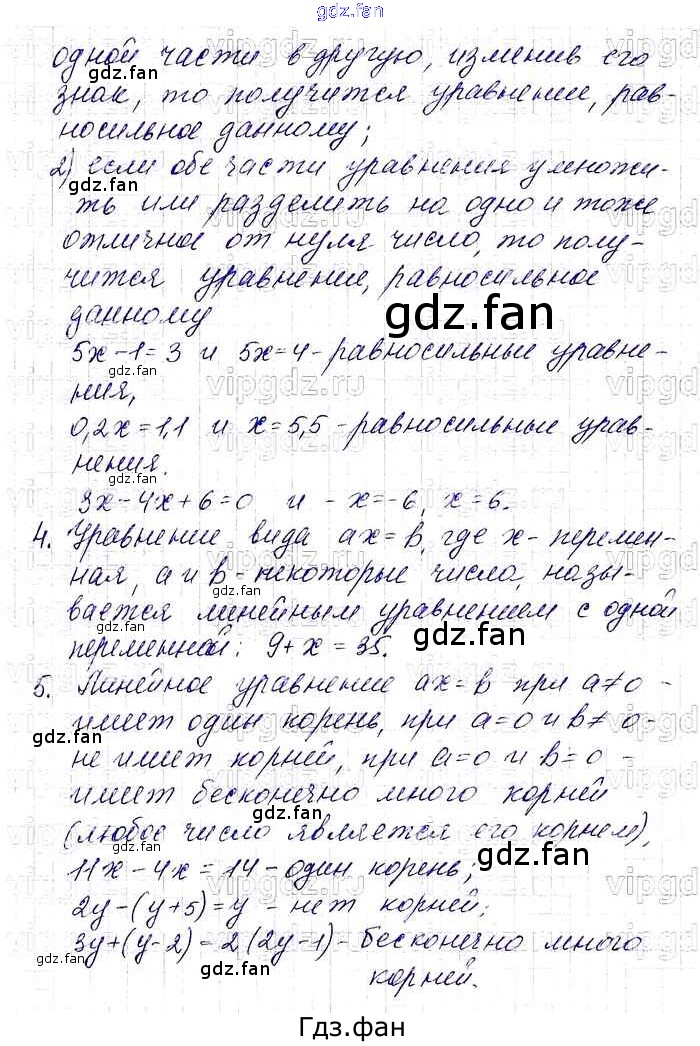 gdz.fan
одной части в другую, изменив его
знак, то получится уравнение, рав-
носильное данному;
2) если обе части уравнения умножи-
ть или разделить на одно и тоже
отличное от нуля число, то полу-
чится уравнение, равносильное
данному
5x-1=3 и 5x=4 - равносильные уравне-
ния,
0,2x=1,1 и x=5,5 - равносильные урав-
нения.
3x-4x+6=0 и -x=-6, x=6.
4. Уравнение вида ax=b, где x- перемен-
ная, a и b - некоторые числа, назы-
вается линейным уравнением с одной
переменной: 9+x=35.
5. Линейное уравнение ax=b при a≠0 -
имеет один корень, при a=0 и b≠0-
не имеет корней, при a=0 и b=0 -
имеет бесконечно много корней
(любое число является его корнем),
11x-4x=14 - один корень;
2y-(y+5)=y - нет корней;
3y+(y-2)=2(2y-1)- бесконечно много
корней.
gdz.fan
gdz.fan
gdz.fan
gdz.fan
gdz.fan
gdz.fan
gdz.fan
gdz.fan
gdz.fan
gdz.fan
gdz.fan
gdz.fan
gdz.fan
Гдз.фан